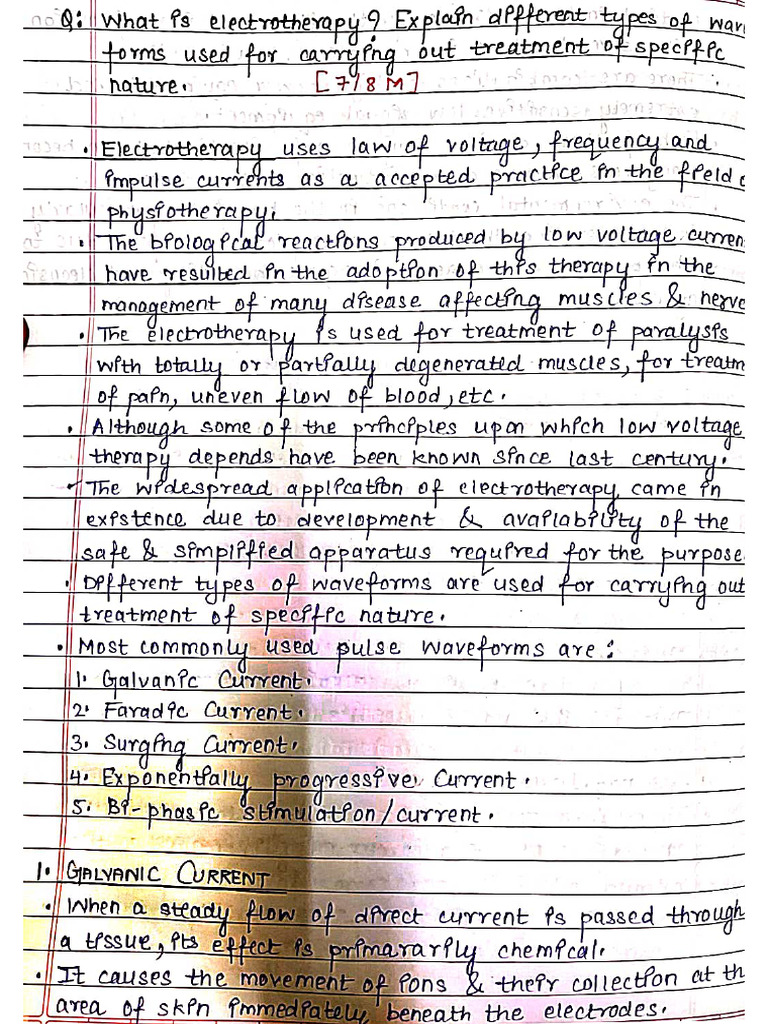 Q: What is electrotherapy? Explain different types of wav
forms used for carrying out treatment of specific
nature. [7/8 M]
• Electrotherapy uses law of voltage, frequency and
impulse currents as a accepted practice in the field o
physiotherapy.
• The biological reactions produced by low voltage curren
have resulted in the adoption of this therapy in the
management of many disease affecting muscles & nerve
• The electrotherapy is used for treatment of paralysis
with totally or partially degenerated muscles, for treatm
of pain, uneven flow of blood, etc.
• Although some of the principles upon which low voltage
therapy depends have been known since last century.
• The widespread application of electrotherapy came in
existence due to development & availability of the
safe & simplified apparatus required for the purpose.
• Different types of waveforms are used for carrying out
treatment of specific nature.
• Most commonly used pulse waveforms are :
1. Galvanic Current.
2. Faradic Current.
3. Surging Current.
4. Exponentially progressive Current.
5. Bi-phasic stimulation/current.
1. GALVANIC CURRENT
• When a steady flow of direct current is passed through
a tissue, its effect is primararily chemical.
• It causes the movement of ions & their collection at th
area of skin immediately beneath the electrodes.